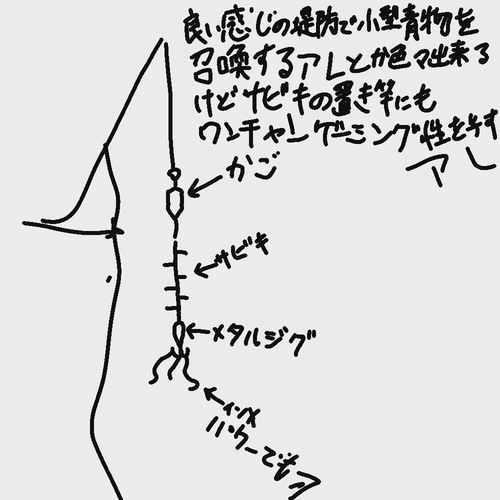 良い感じの堤防で小型青物を
召喚するアレとか色々出来る
けどサビキの置き竿にも
ワンチャンゲーミング性を示す
アレ
かご
サビキ
メタルジグ
イソメ
パワーでも